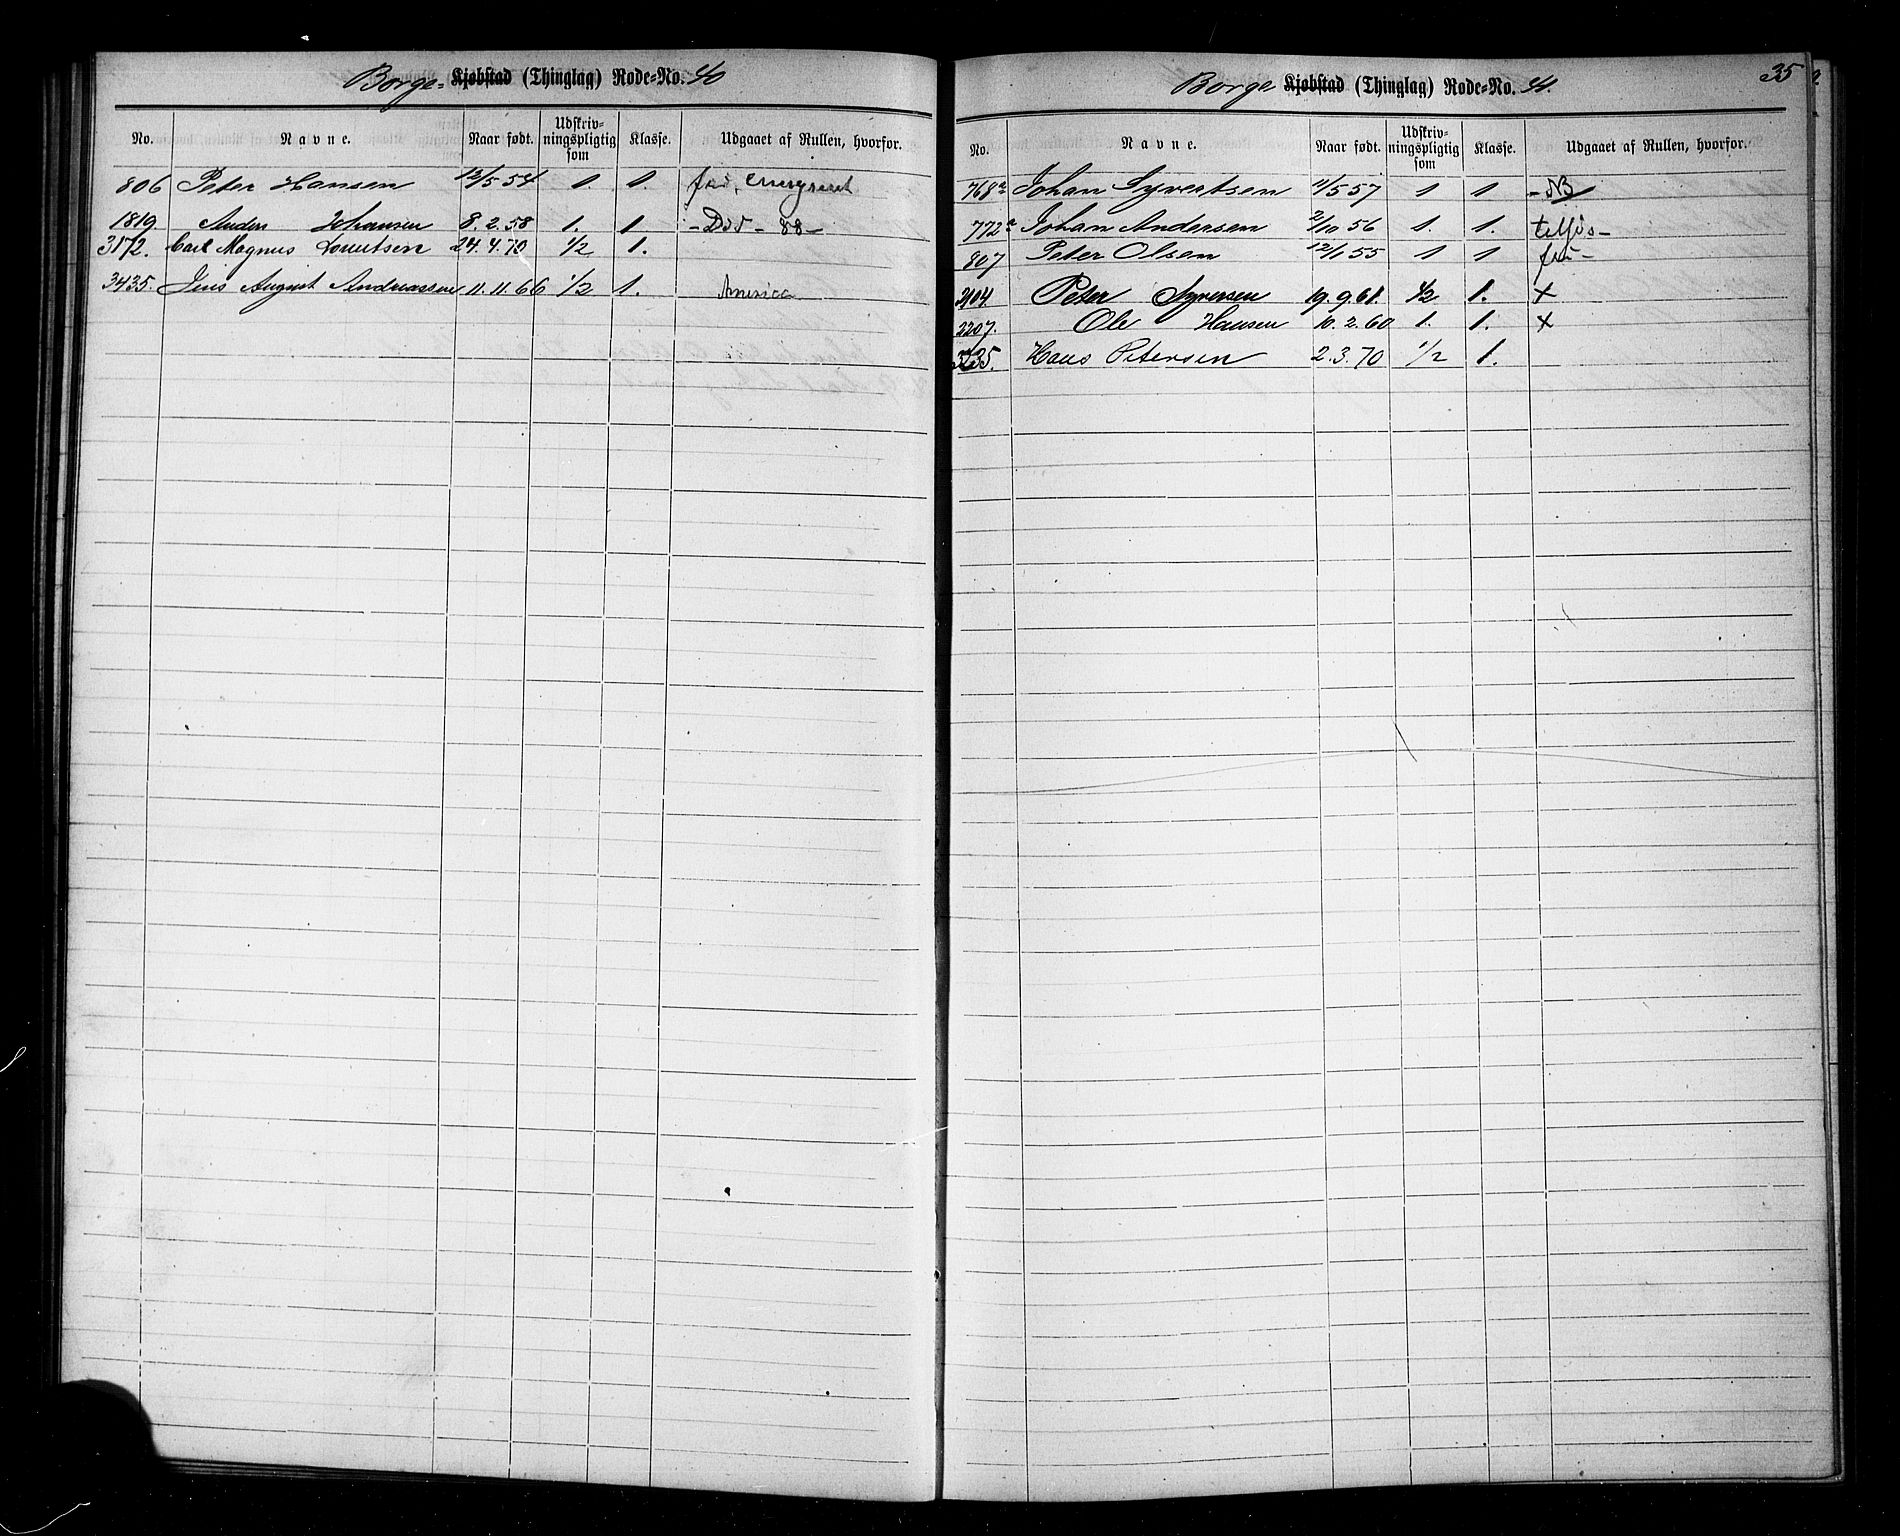 Borge- Kjøbstad (Thinglag) Rode-No. 40
No. Navne. Naar født. Udskriv-ningspligtig som Klasse. Udgaaet af Rullen, hvorfor.
806 Peter Hansen 12/5 54 1. 1.
1819. Anders Johansen 8.2.58 1. 1. - Död - 88 -
3172. Carl Magnus 24.4.70 1/2 1.
3435. Jens August Andreassen 11.11.66 1/2 1. America
35
Borge Kjøbstad (Thinglag) Rode-No. 41.
No. Navne. Naar født. Udskriv-ningspligtig som Klasse. Udgaaet af Rullen, hvorfor.
768a Johan Syvertsen 11/5 57 1 1 - NB
772a Johan Andersen 2/10 56 1. 1. tilsjös -
807 Peter Olsen 12/1 55 1 1
2104. Peter Syversen 19.9.61. 1/2 1. x
2207. Ole Hansen 10.2.60 1. 1. x
Hans Petersen 2.3.70 1/2 1.